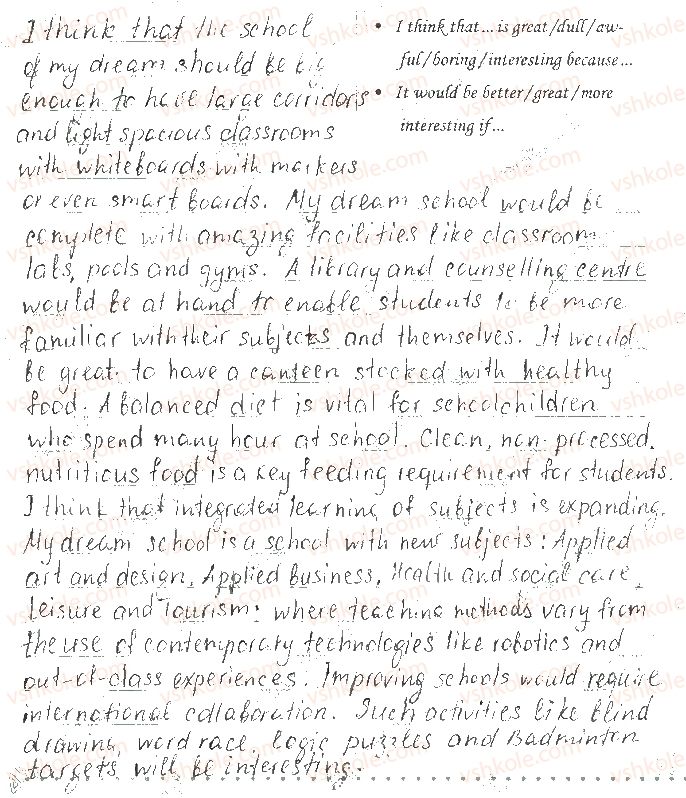 I think that the school
of my dream should be big
enough to have large corridors
and light spacious classrooms
with whiteboards with markers
or even smart boards. My dream school would be
complete with amazing facilities like classroom
labs, pools and gyms. A library and counselling centre
would be at hand to enable students to be more
familiar with their subjects and themselves. It would
be great to have a canteen stocked with healthy
food. A balanced diet is vital for schoolchildren
who spend many hour at school. Clean, non-processed,
nutritious food is a key feeding requirement for students.
I think that integrated learning of subjects is expanding.
My dream school is a school with new subjects: Applied
art and design, Applied Business, Health and social care,
Leisure and Tourism; where teaching methods vary from
the use of contemporary technologies like robotics and
out-of-class experiences. Improving schools would require
international collaboration. Such activities like blind
drawing, word race, logic puzzles and Badminton
targets will be interesting.
• I think that ... is great / dull / aw-
ful / boring / interesting because ...
• It would be better / great / more
interesting if ...
vshkole.com